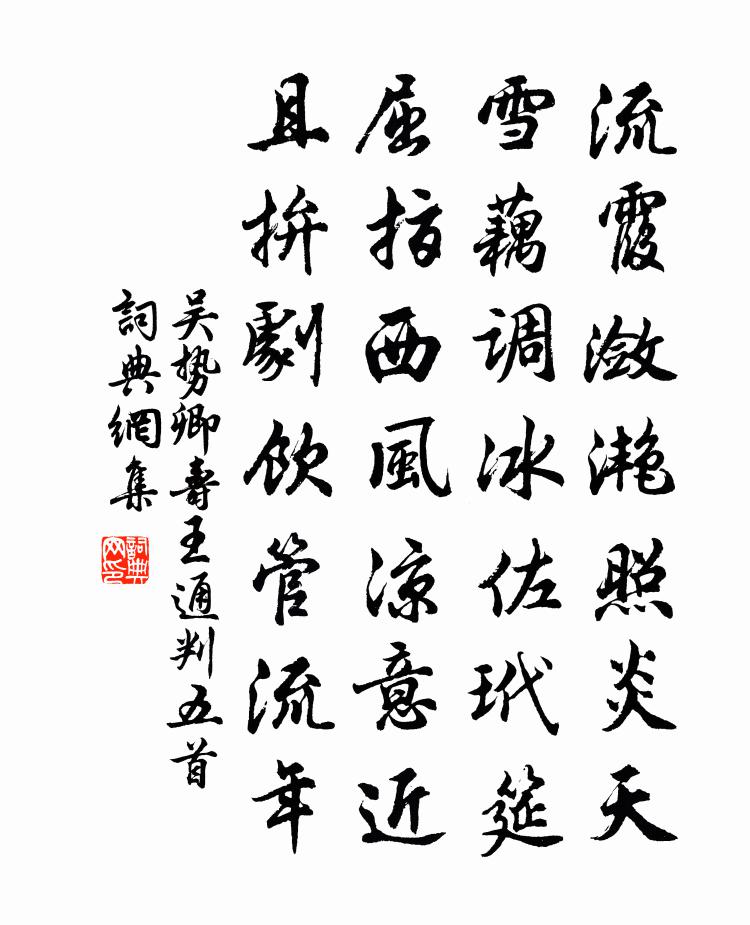 流霞潋滟照炎天
雪藕调冰佐玳筵
屈指西風凉意近
且拚劇饮管流年
吴势卿壽王通判五首
詞典網集
詞典網印